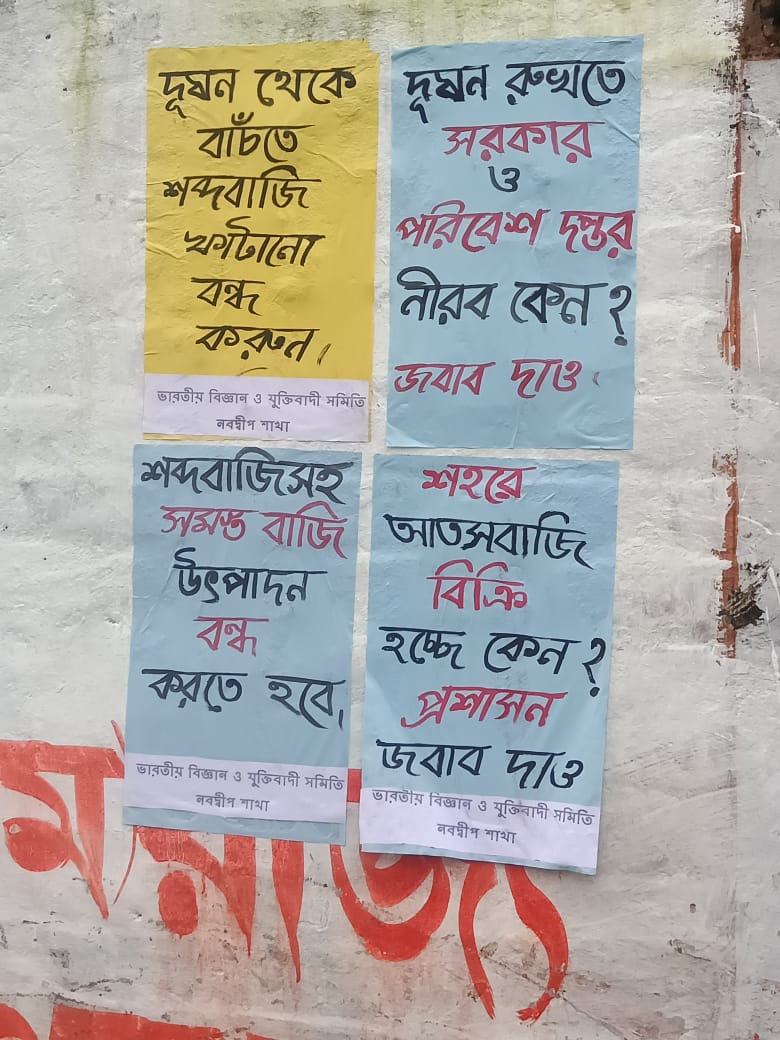 দূষন থেকে
বাঁচতে
শব্দবাজি
ফাটানো
বন্ধ
করুন।
ভারতীয় বিজ্ঞান ও যুক্তিবাদী সমিতি
নবদ্বীপ শাখা
দূষন রুখতে
সরকার
ও
পরিবেশ দপ্তর
নীরব কেন?
জবাব দাও।
শব্দবাজিসহ
সমস্ত বাজি
উৎপাদন
বন্ধ
করতে হবে।
ভারতীয় বিজ্ঞান ও যুক্তিবাদী সমিতি
নবদ্বীপ শাখা
শহরে
আতসবাজি
বিক্রি
হচ্ছে কেন?
প্রশাসন
জবাব দাও
ভারতীয় বিজ্ঞান ও যুক্তিবাদী সমিতি
নবদ্বীপ শাখা